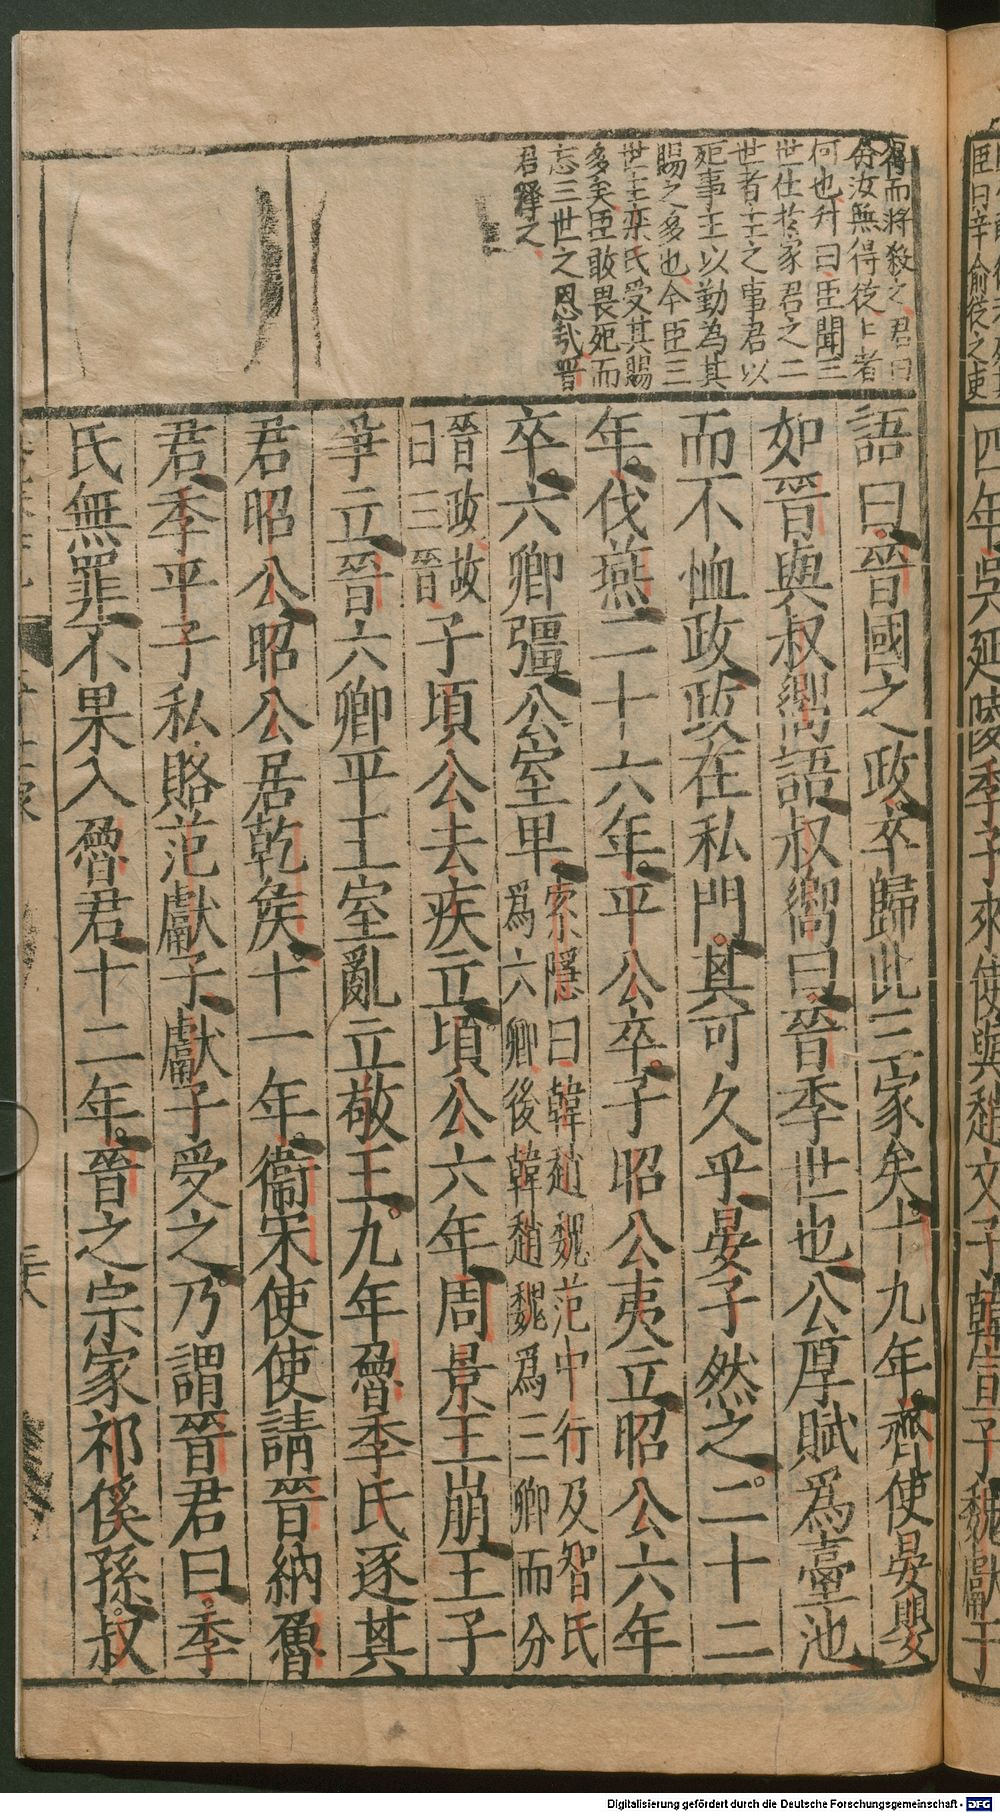 得而將殺之君曰
命汝無得從上者
何也对曰臣聞三
世仕於家君之二
世者主之事君以
死事主以勤為其
賜之多也今臣三
世主栾氏受其賜
多矣臣敢畏死而
忘三世之恩哉晋
君釋之
語曰晉國之政卒歸此三家矣十九年齊使晏嬰
如晉與叔嚮語叔嚮曰晉季世也公厚賦爲臺池
而不恤政政在私門其可久乎晏子然之二十二
年伐燕二十六年平公卒子昭公夷立昭公六年
卒六卿彊公室卑索隱曰韓趙魏范中行及智氏
爲六卿後韓趙魏爲三卿而分
晉政故
曰三晉子頃公去疾立頃公六年周景王崩王子
爭立晉六卿平王室亂立敬王九年魯季氏逐其
君昭公昭公居乾矦十一年衞宋使使請晉納魯
君季平子私賂范獻子獻子受之乃謂晉君曰季
氏無罪不果入魯君十二年晉之宗家祁傒孫叔
三十八
臣曰辛俞從之吏
四年吳延陵季子來使與趙文子韓宣子魏獻子
Digitalisierung gefördert durch die Deutsche Forschungsgemeinschaft - DFG